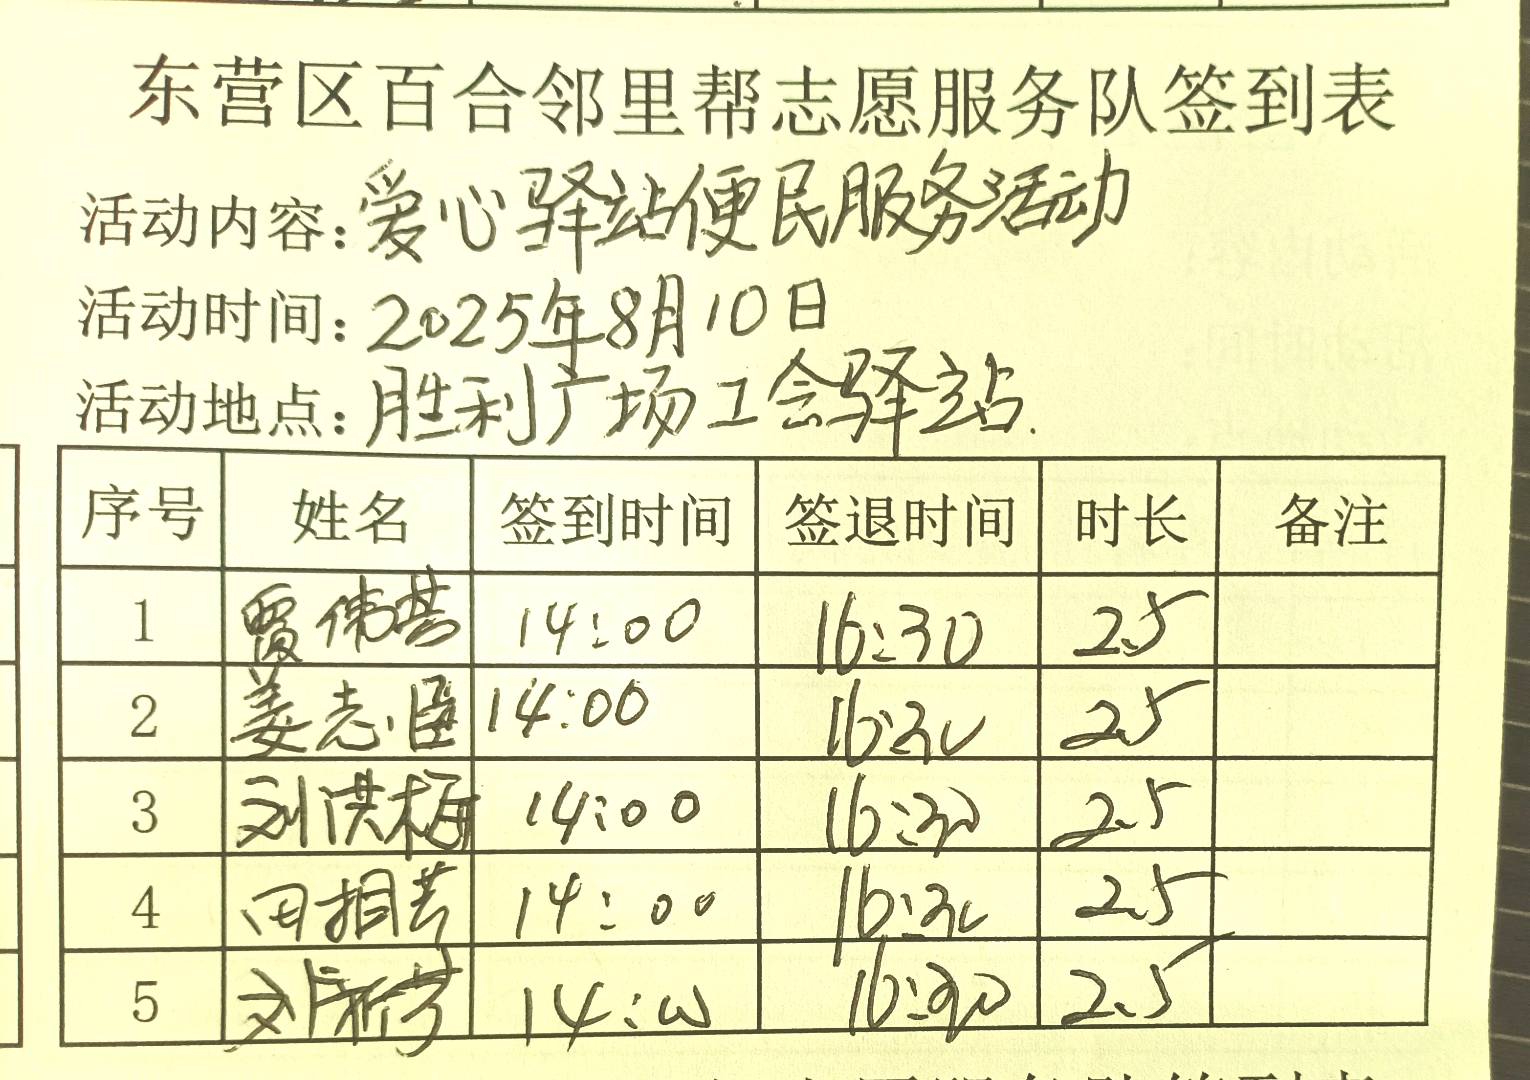 东营区百合邻里帮志愿服务队签到表
活动内容：爱心驿站便民服务活动
活动时间：2025年8月10日
活动地点：胜利广场工会驿站.
序号 姓名 签到时间 签退时间 时长 备注
1 贾伟 14:00 16:30 2.5
2 姜志 14:00 16:30 2.5
3 刘洪梅 14:00 16:30 2.5
4 田相芸 14:00 16:30 2.5
5 刘 14:00 16:30 2.5